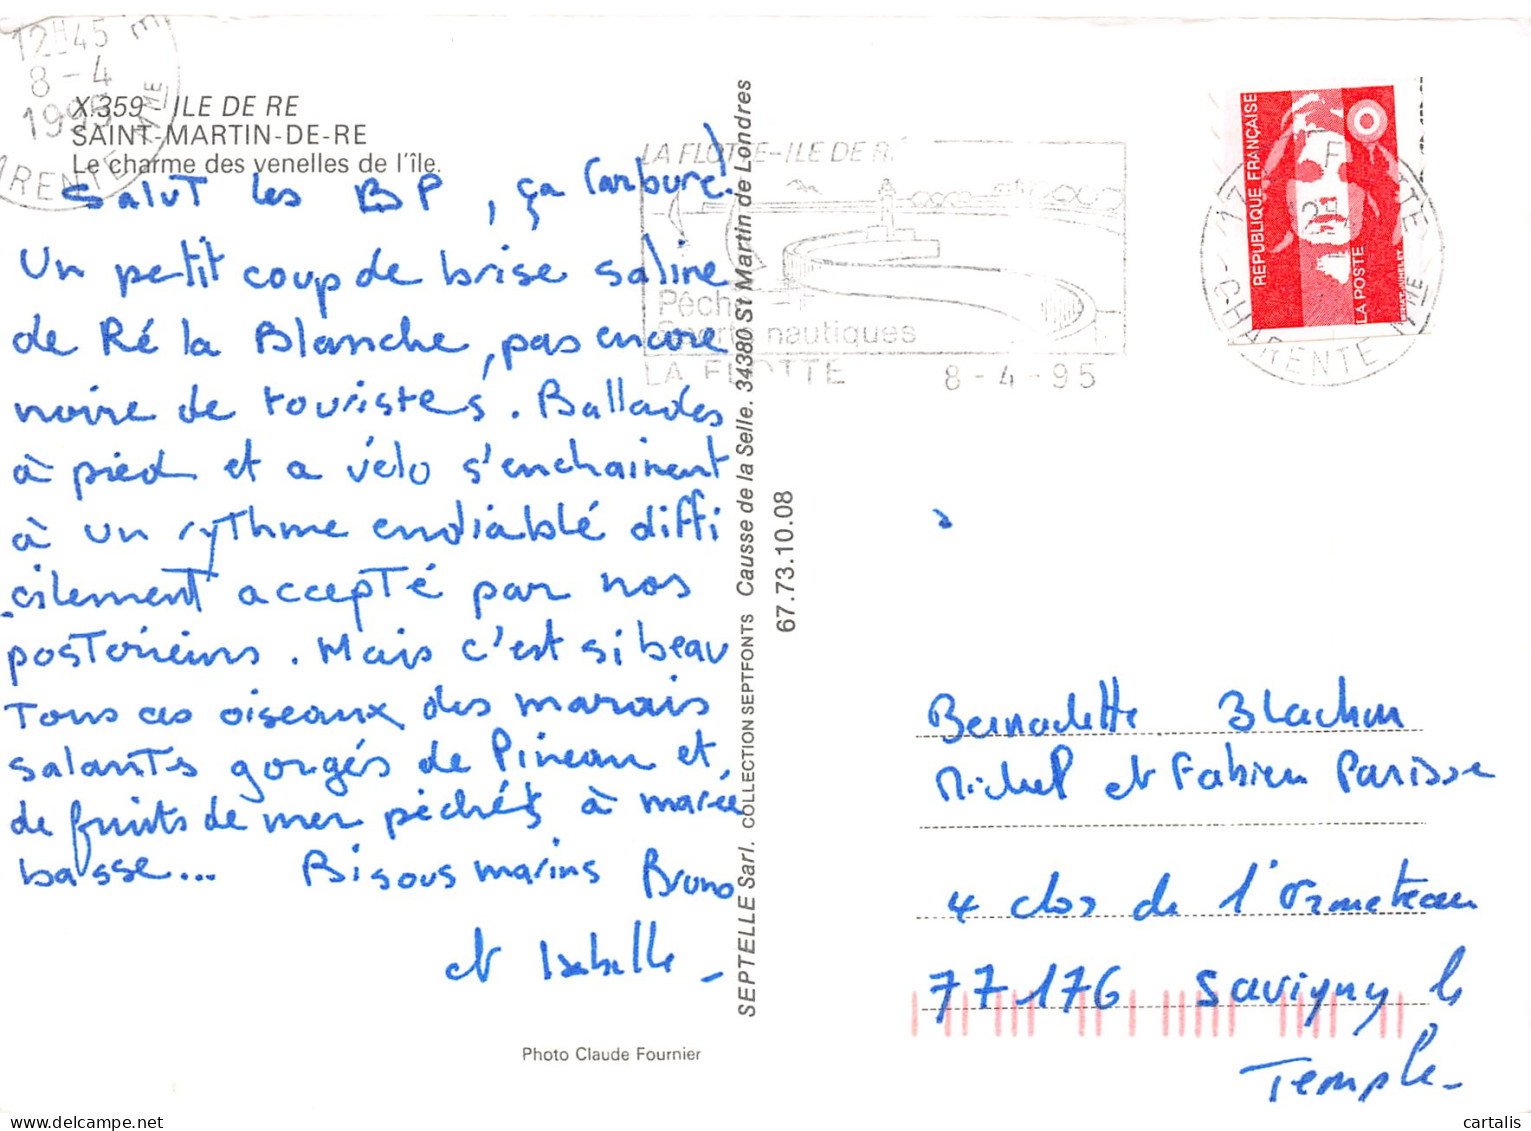 12H45
8-4
1995
X.359 - ILE DE RE
SAINT-MARTIN-DE-RE
Le charme des venelles de l'île.
Salut les BP, ça carbure!
Un petit coup de brise saline
de Ré la Blanche, pas encore
noire de touristes. Ballades
à pied et a vélo s'enchainent
à un rythme endiablé diffi
cilement accepté par nos
postérieurs. Mais c'est si beau
Tous ces oiseaux des marais
salants gorgés de Pineau et,
de fruits de mer pêchés à marée
basse... Bisous marins Bruno
et Isabelle -
Photo Claude Fournier
SEPTELLE Sarl. COLLECTION SEPTFONTS Causse de la Selle. 34380 St Martin de Londres
67.73.10.08
LA FLOTTE-ILE DE RÉ
Pêche
Sports nautiques
LA FLOTTE 8-4-95
REPUBLIQUE FRANÇAISE
LA POSTE
CHARENTE MME
Bernadette Blachon
Michel et Fabien Parisse
4 clos de l'Ormeteau
77176 Savigny le
Temple-
cartalis
www.delcampe.net